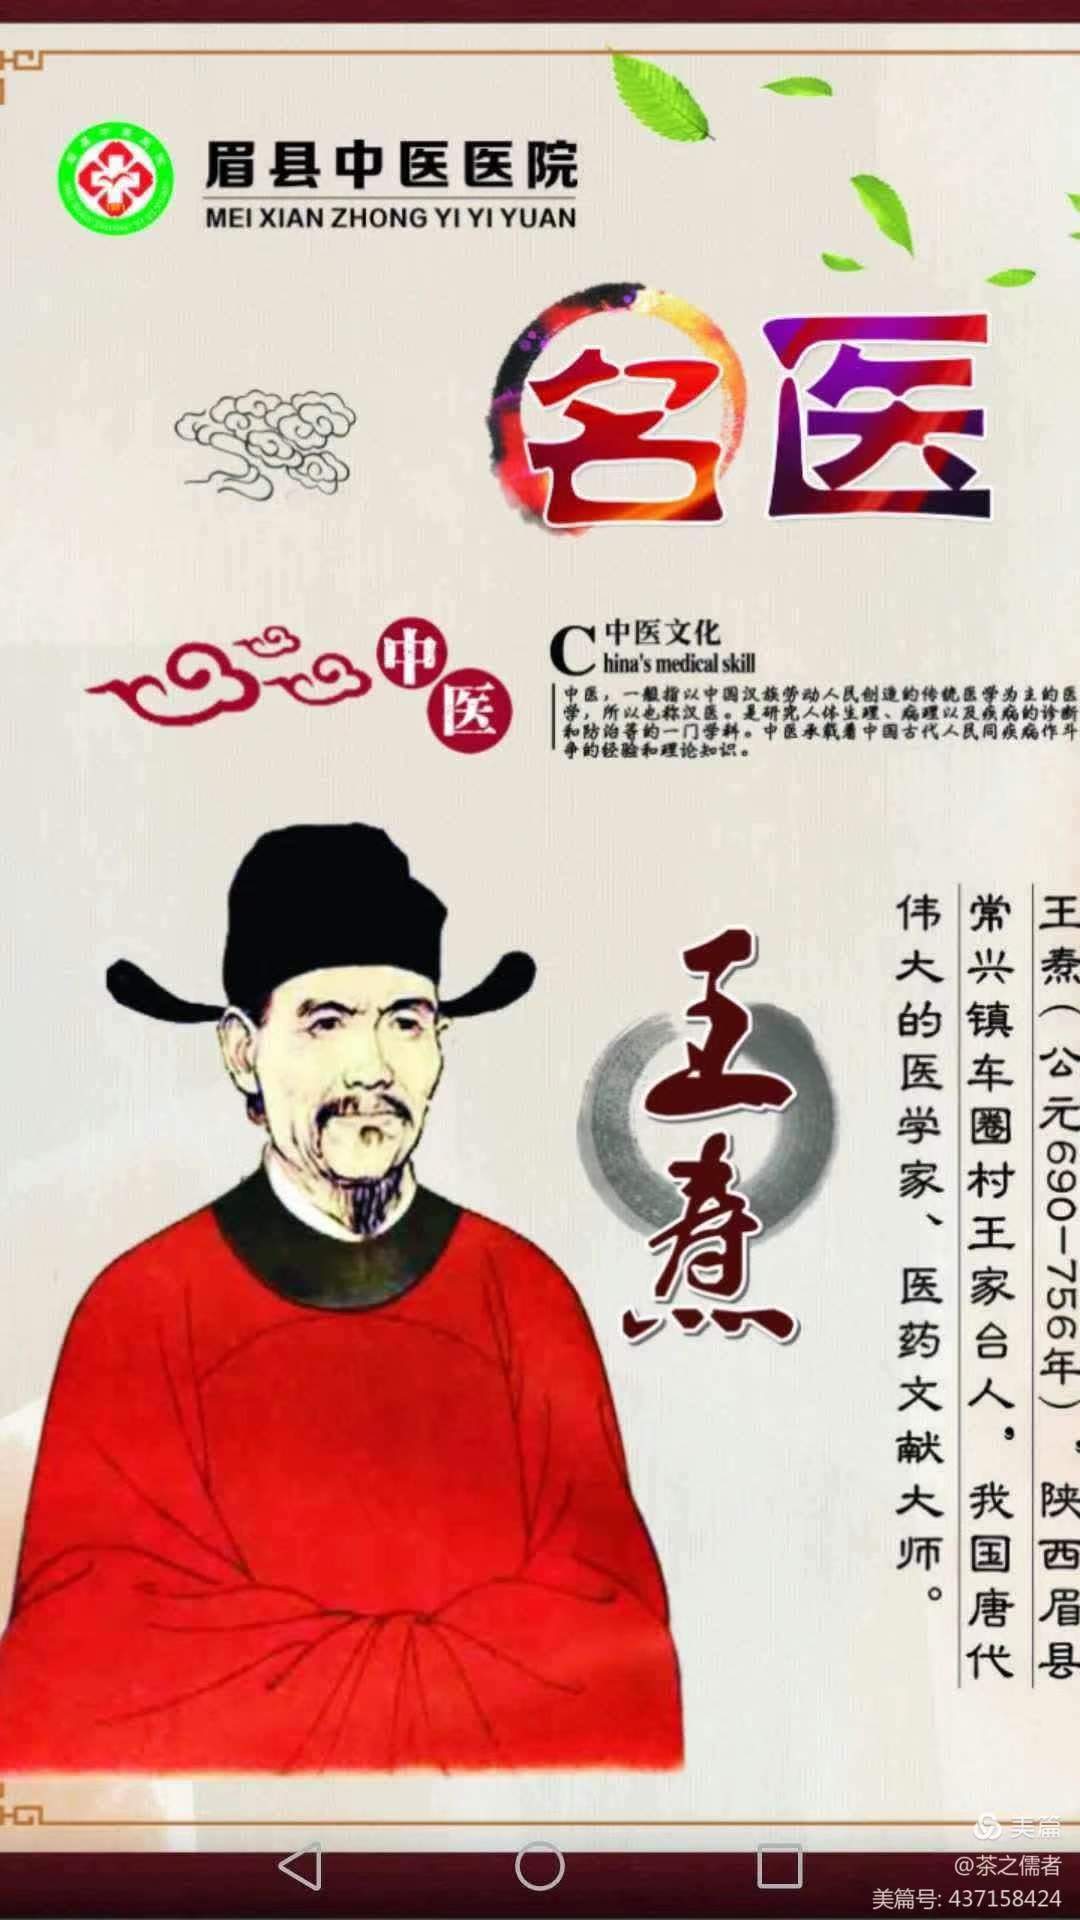 眉县中医医院
MEI XIAN ZHONG YI YI YUAN
名医
中医
C 中医文化
hina's medical skill
中医，一般指以中国汉族劳动人民创造的传统医学为主的医
学，所以也称汉医。是研究人体生理、病理以及疾病的诊断
和防治等的一门学科。中医承载着中国古代人民同疾病作斗
争的经验和理论知识。
王焘
王焘(公元690-756年)，陕西眉县
常兴镇车圈村王家台人，我国唐代
伟大的医学家、医药文献大师。
美篇
@茶之儒者
美篇号: 437158424